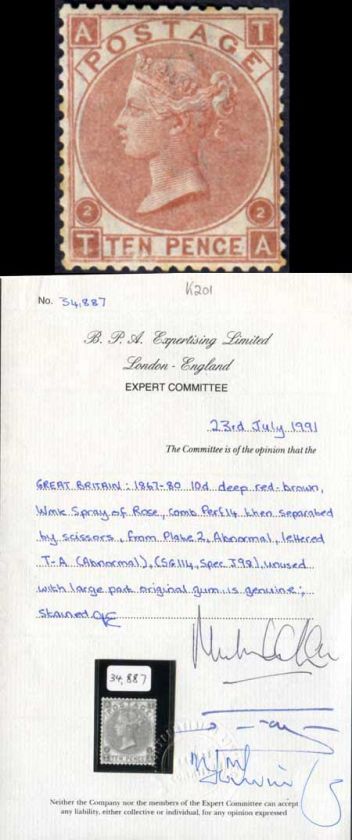 A T
POSTAGE
2 2
T TEN PENCE A
K201
No. 34,887
B. P. A. Expertising Limited
London - England
EXPERT COMMITTEE
23rd July 1991
The Committee is of the opinion that the
GREAT BRITAIN: 1867-80 10d. deep red-brown,
Wmk Spray of Rose, comb Perf 14 then separated
by scissors, from Plate 2, Abnormal, lettered
T-A (Abnormal), (SG114, Spec J98), unused
with large part original gum is genuine;
stained
34,887
TEN PENCE
Neither the Company nor the members of the Expert Committee can accept
any liability, either collective or individual, for any opinion expressed